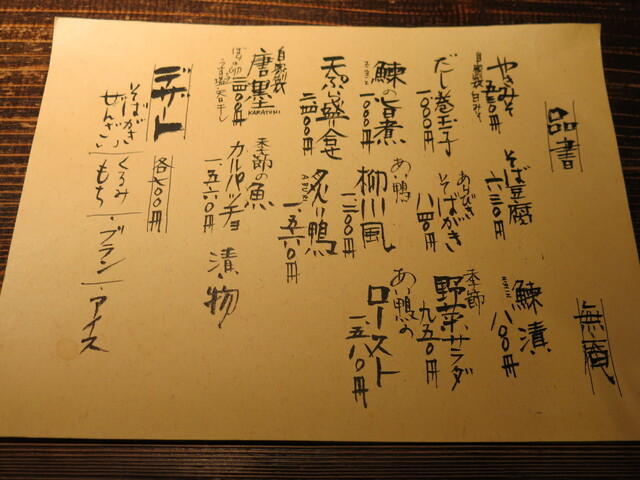 品書
無庵
やきみそ
自家製白みそ
五二〇円
そば豆腐
六三〇円
鰊漬
にしん
八〇〇円
だし巻玉子
一、〇〇〇円
あらびき
そばがき
八四〇円
季節
野菜サラダ
九五〇円
鰊の旨煮
にしん
一、〇〇〇円
あい鴨
柳川風
一、二〇〇円
あい鴨の
ロースト
一、五八〇円
天ぷら盛合せ
二、四〇〇円
炙り鴨
ABURI
一、五六〇円
自家製
唐墨
KARASUMI
二、四〇〇円
ぼらの卵
うす塩 天日干し
季節の魚
カルパッチョ
一、五六〇円
漬物
デザート
各七〇〇円
そばがき
ぜんざい
くるみ
もち
・ブラン
・アイス